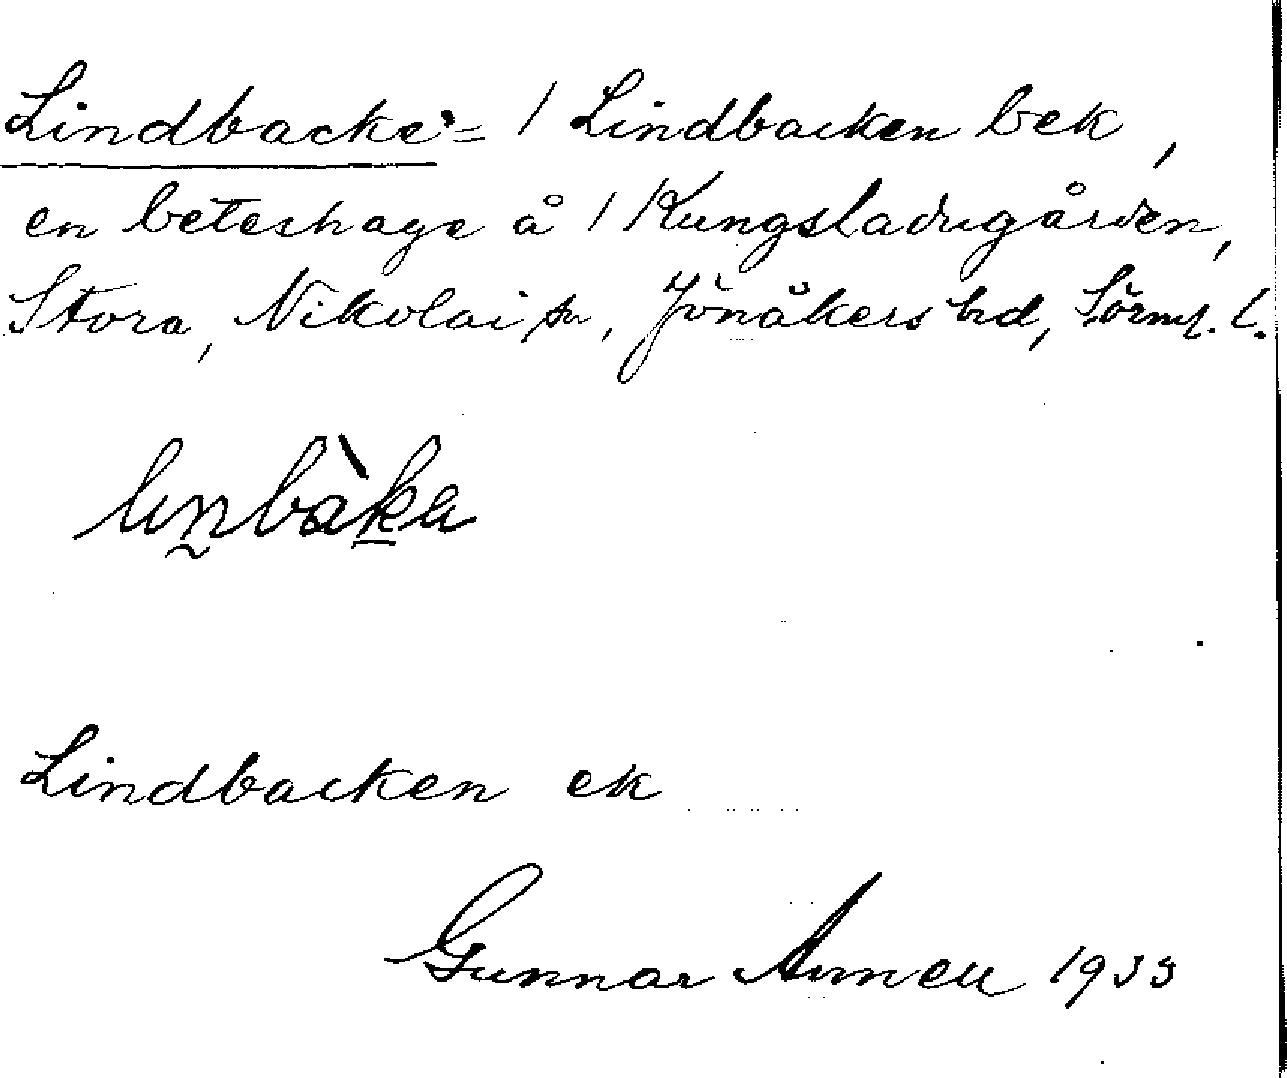 Lindbacke:= / Lindbacken bek,
en beteshage å / Kungsladugården,
Stora, Nikolai sn, Jönåkers hd, Sörml. l.
linbàka
Lindbacken ek
Gunnar 1933